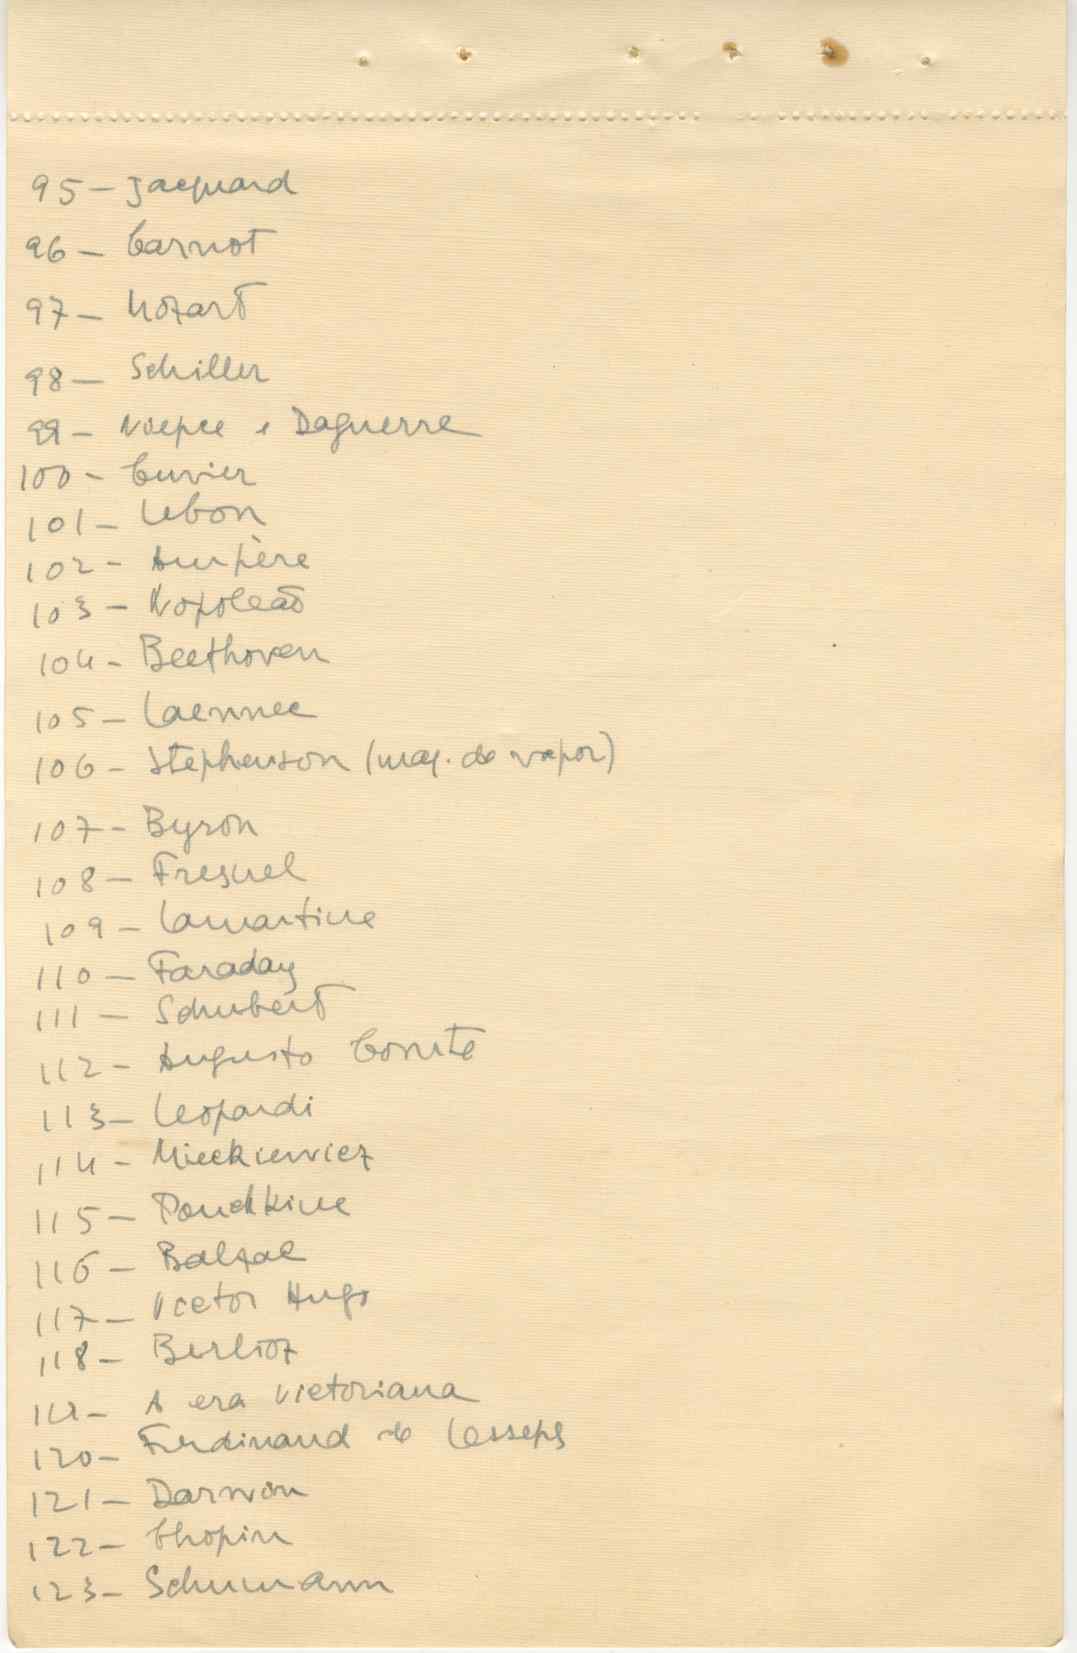 95 - Jacquard
96 - Carnot
97 - Mozart
98 - Schiller
99 - Niepce e Daguerre
100 - Cuvier
101 - Lebon
102 - Ampère
103 - Napoleão
104 - Beethoven
105 - Laennec
106 - Stephenson (maq. de vapor)
107 - Byron
108 - Fresnel
109 - Lamartine
110 - Faraday
111 - Schubert
112 - Augusto Comte
113 - Leopardi
114 - Mieckiewicz
115 - Pouchkine
116 - Balzac
117 - Victor Hugo
118 - Berlioz
119 - A era Victoriana
120 - Ferdinand de Lesseps
121 - Darwin
122 - Chopin
123 - Schumann